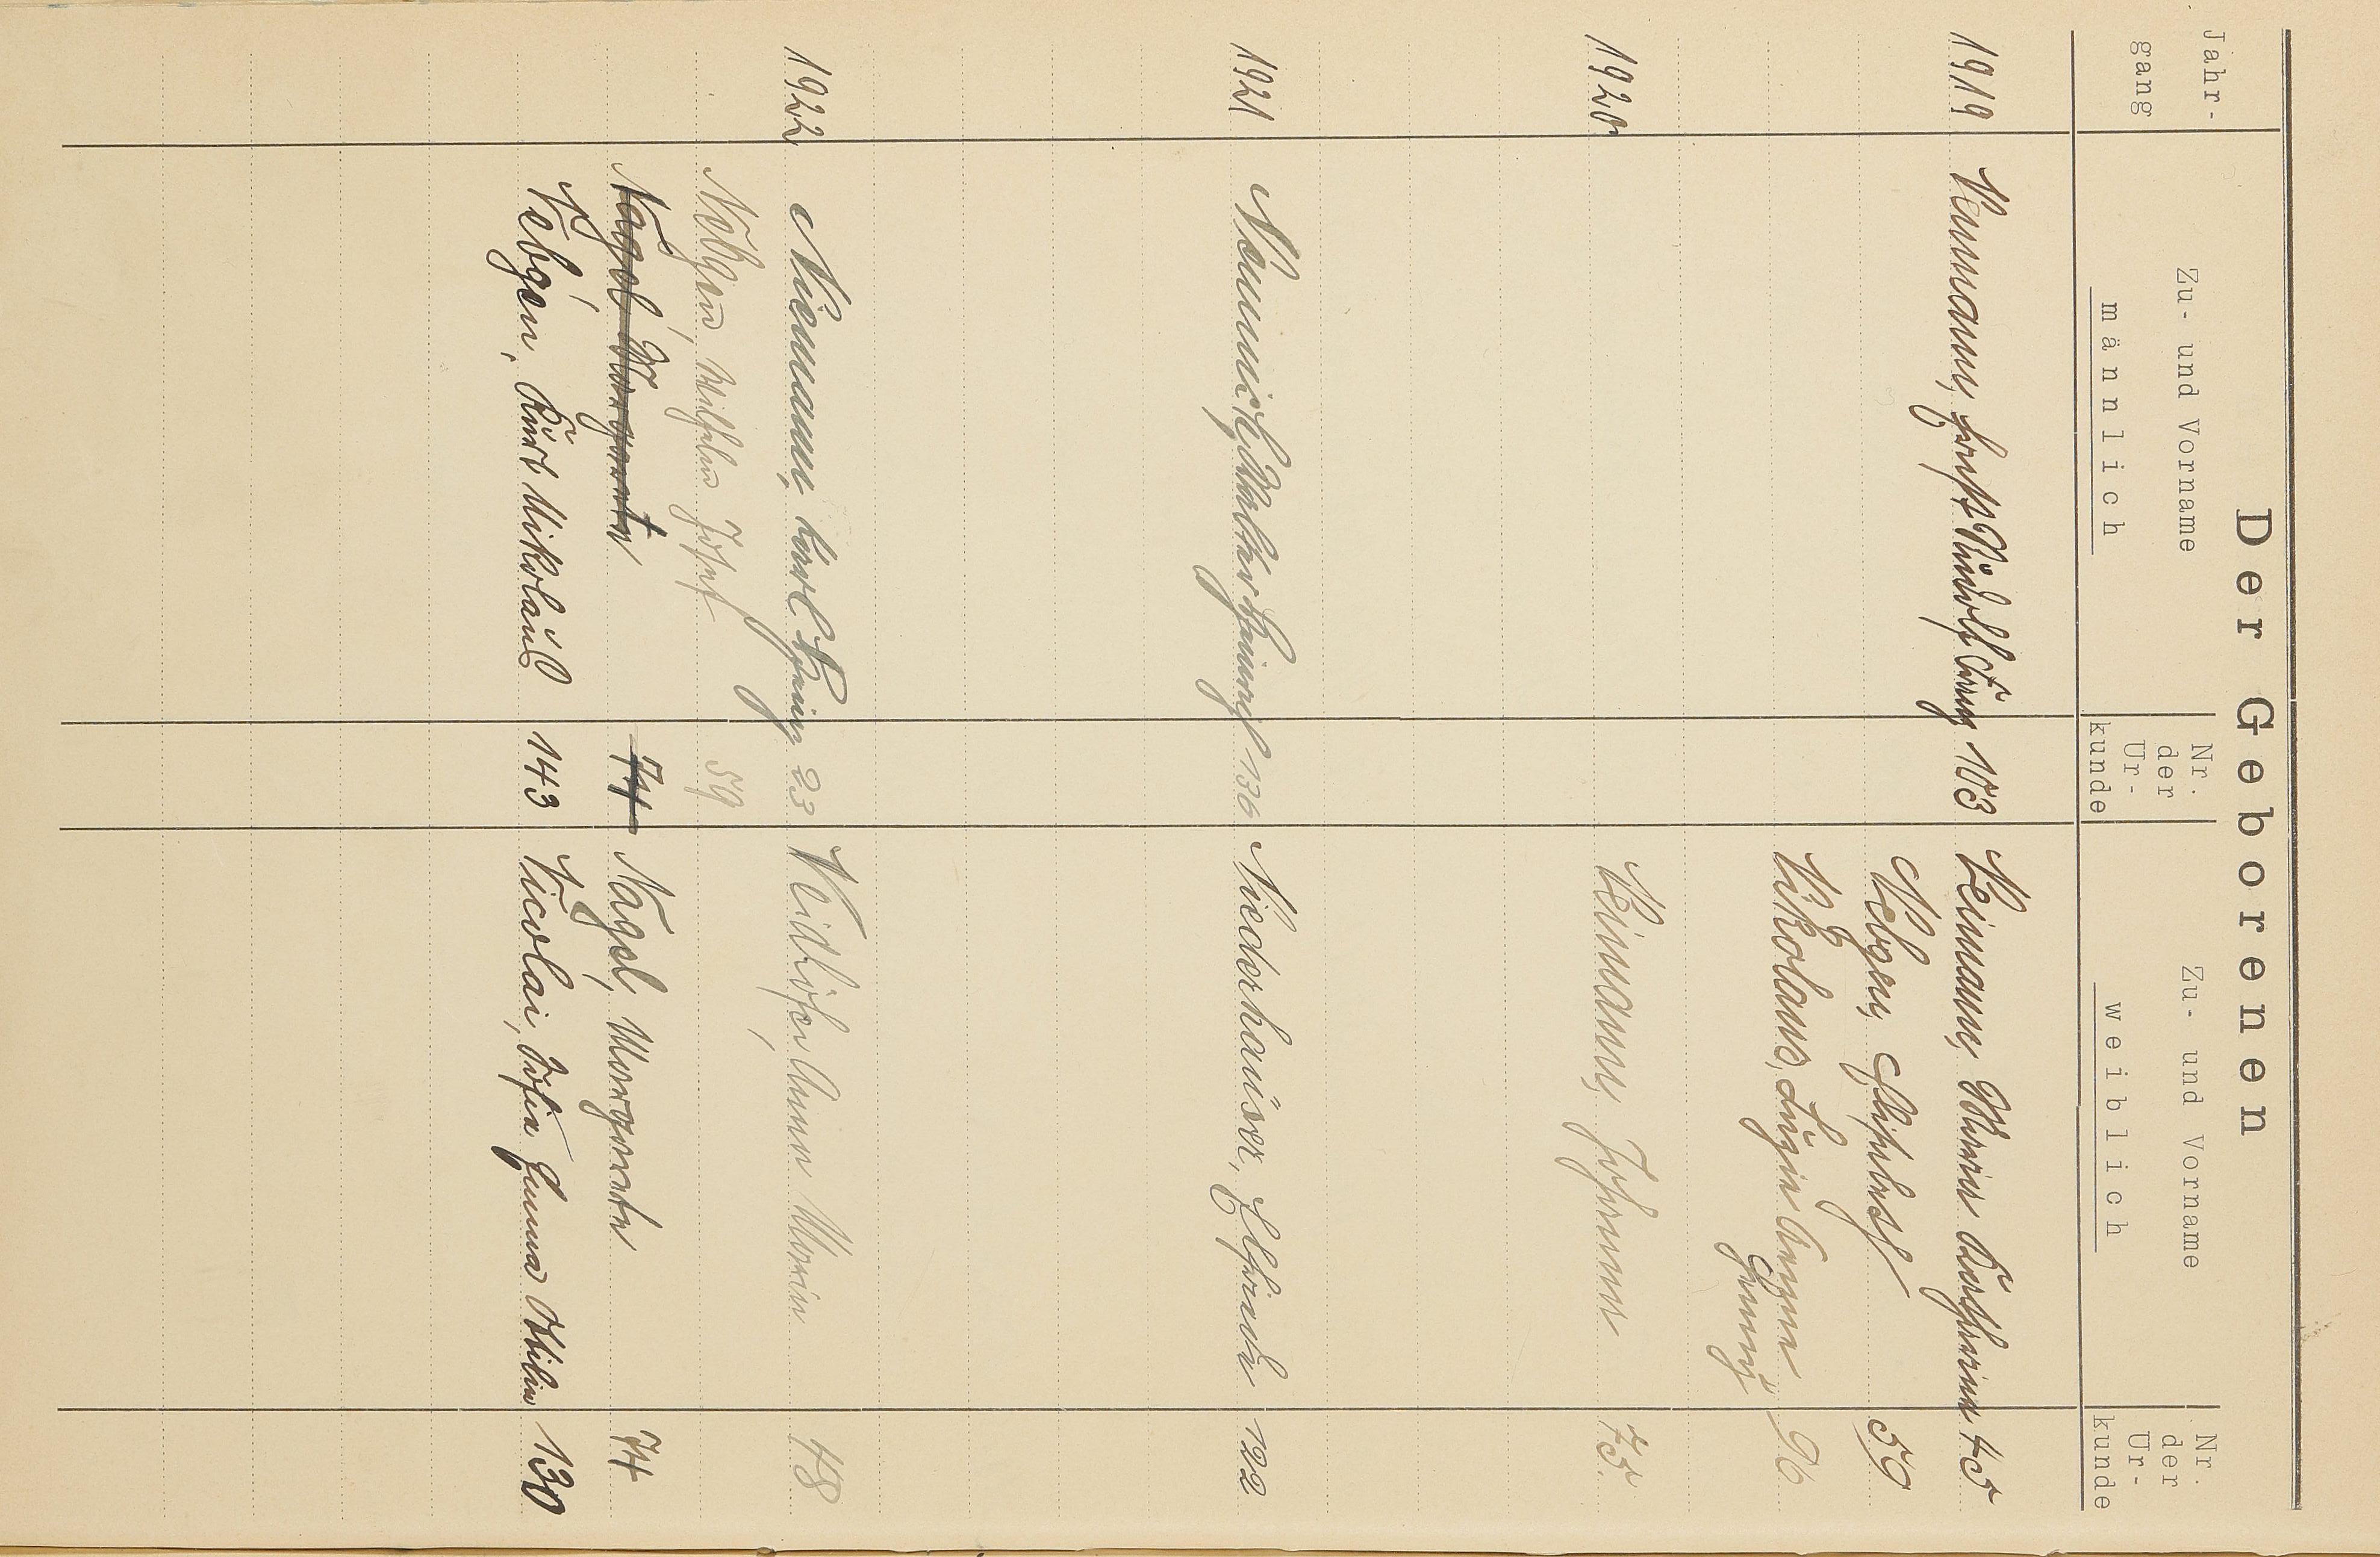 Der Geborenen
Jahr-
gang
Zu- und Vorname
männlich
Nr.
der
Ur-
kunde
Zu- und Vorname
weiblich
Nr.
der
Ur-
kunde
1919 Neumann, Horst Rudolf Georg 103 Neimann, Maria Katharina 45
Nebgen, Elisabeth 59
Nikolaus, Luzia Anna 96
1920 Neimann, Johanna 75.
1921 Walter Heinrich 136 Niederhauser, Elfriede 122
1922 Niemann, Karl Heinz 23 Neidhöfer, Anna Maria 48
Nebgen, Wilhelm Josef 59
Nagel Margareta 74 Nagel, Margareta 74
Nebgen, Kurt Nikolaus 143 Nicolai, Sofia Emma Ottilie 130